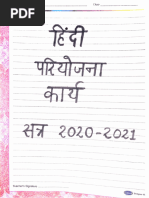 हिंदी
परियोजना
कार्य
सत्र 2020-2021